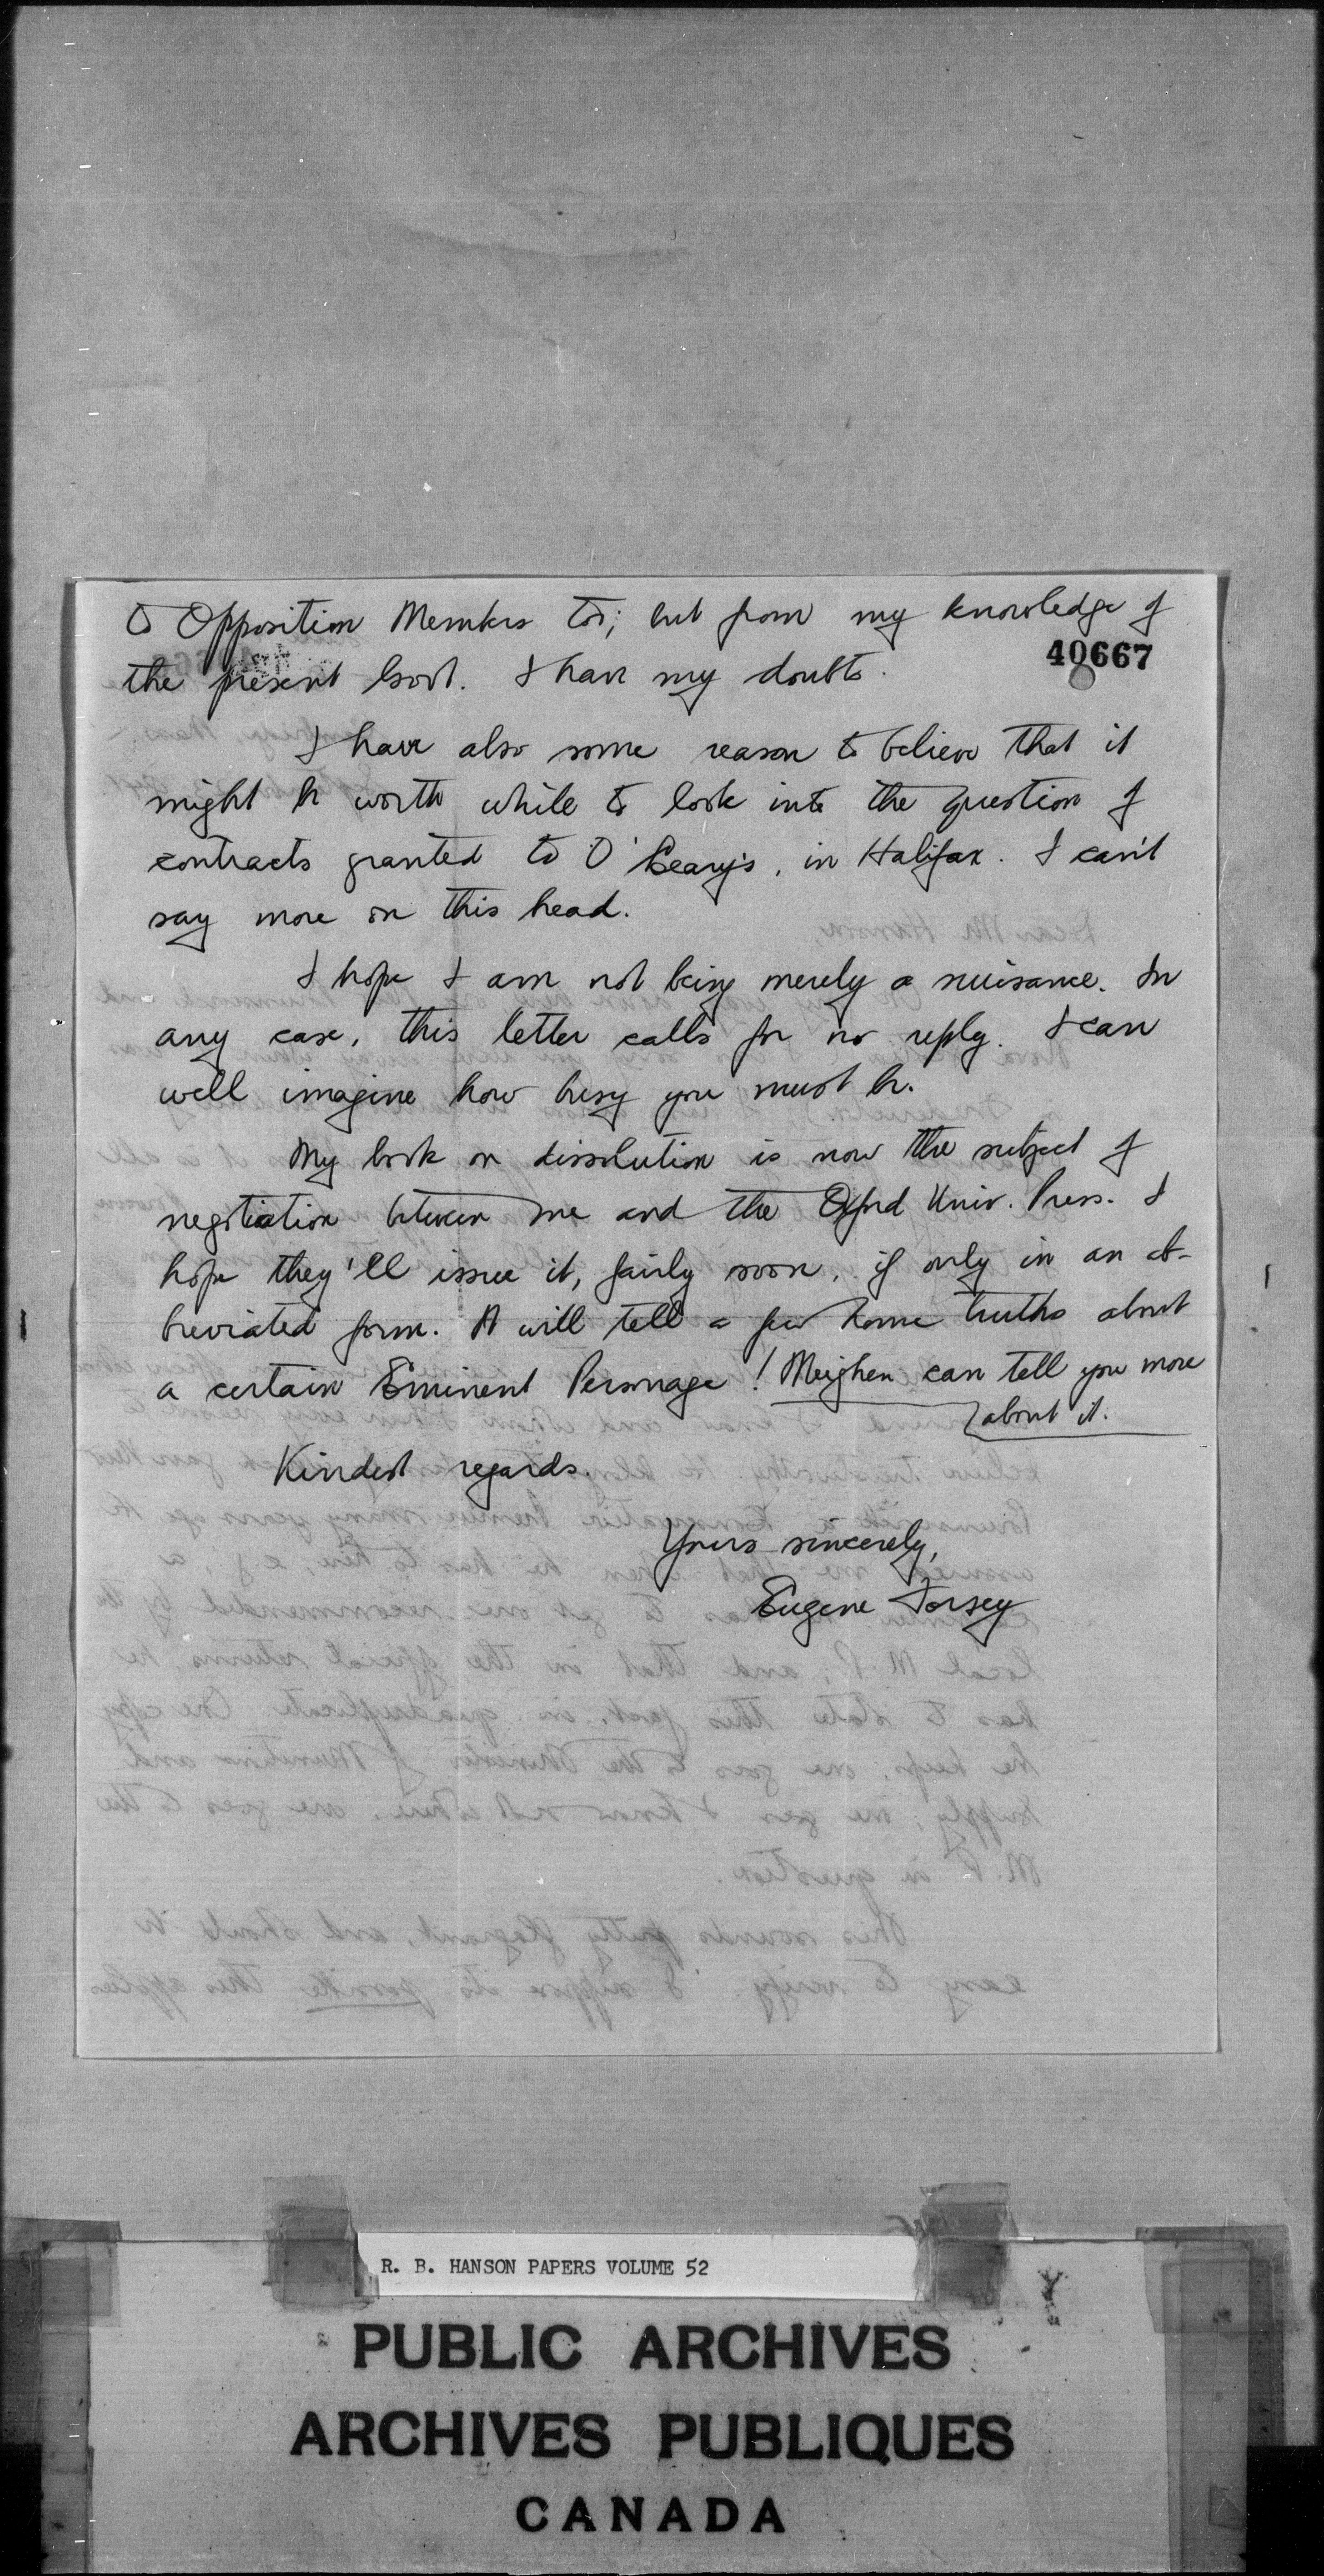 to Opposition Members too; but from my knowledge of
40667
the present Govt. I have my doubts.
I have also some reason to believe that it
might be worth while to look into the question of
contracts granted to O'Leary's, in Halifax. I can't
say more on this head.
I hope I am not being merely a nuisance. In
any case, this letter calls for no reply. I can
well imagine how busy you must be.
My book on dissolution is now the subject of
negotiation between me and the Oxford Univ. Press. I
hope they'll issue it, fairly soon, if only in an ab-
breviated form. It will tell a few home truths about
a certain Eminent Personage! Meighen can tell you more
about it.
Kindest regards.
Yours sincerely,
Eugene Forsey
R. B. HANSON PAPERS VOLUME 52
PUBLIC ARCHIVES
ARCHIVES PUBLIQUES
CANADA